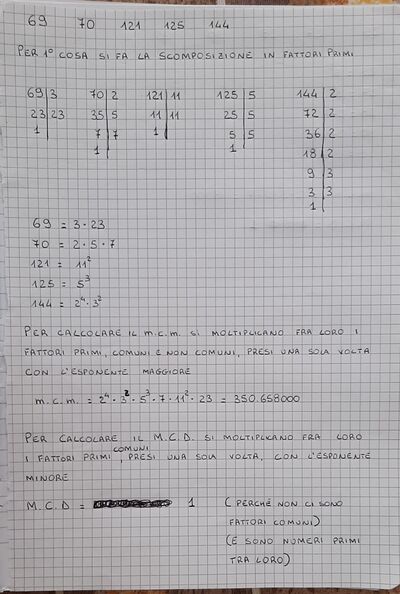 69 70 121 125 144
PER 1° COSA SI FA LA SCOMPOSIZIONE IN FATTORI PRIMI
69|3 70|2 121|11 125|5 144|2
23|23 35|5 11|11 25|5 72|2
1 7|7 1 5|5 36|2
1 1 18|2
9|3
3|3
1
69 = 3·23
70 = 2·5·7
121 = 11²
125 = 5³
144 = 2⁴·3²
PER CALCOLARE IL m.c.m. SI MOLTIPLICANO FRA LORO I
FATTORI PRIMI, COMUNI E NON COMUNI, PRESI UNA SOLA VOLTA
CON L'ESPONENTE MAGGIORE
m.c.m. = 2⁴·3²·5³·7·11²·23 = 350.658000
PER CALCOLARE IL M.C.D. SI MOLTIPLICANO FRA LORO
I FATTORI PRIMI COMUNI, PRESI UNA SOLA VOLTA, CON L'ESPONENTE
MINORE
M.C.D = 1 (PERCHÉ NON CI SONO
FATTORI COMUNI)
(E SONO NUMERI PRIMI
TRA LORO)